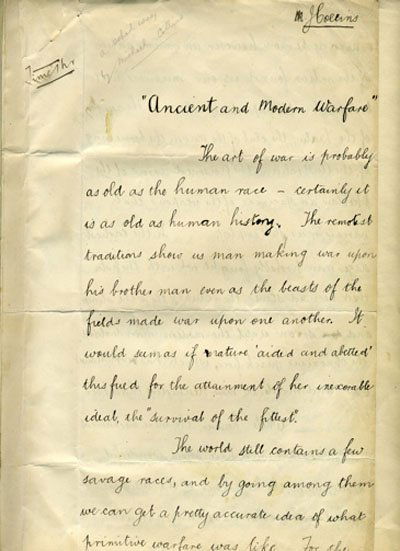 M J Collins
by Michael Collins
Time 1hr
"Ancient and Modern Warfare"
The art of war is probably
as old as the human race – certainly it
is as old as human history. The remotest
traditions show us man making war upon
his brother man even as the beasts of the
fields made war upon one another. It
would seem as if nature 'aided and abetted'
this fued for the attainment of her inexorable
ideal, the "survival of the fittest".
The world still contains a few
savage races, and by going among them
we can get a pretty accurate idea of what
primitive warfare was like. For